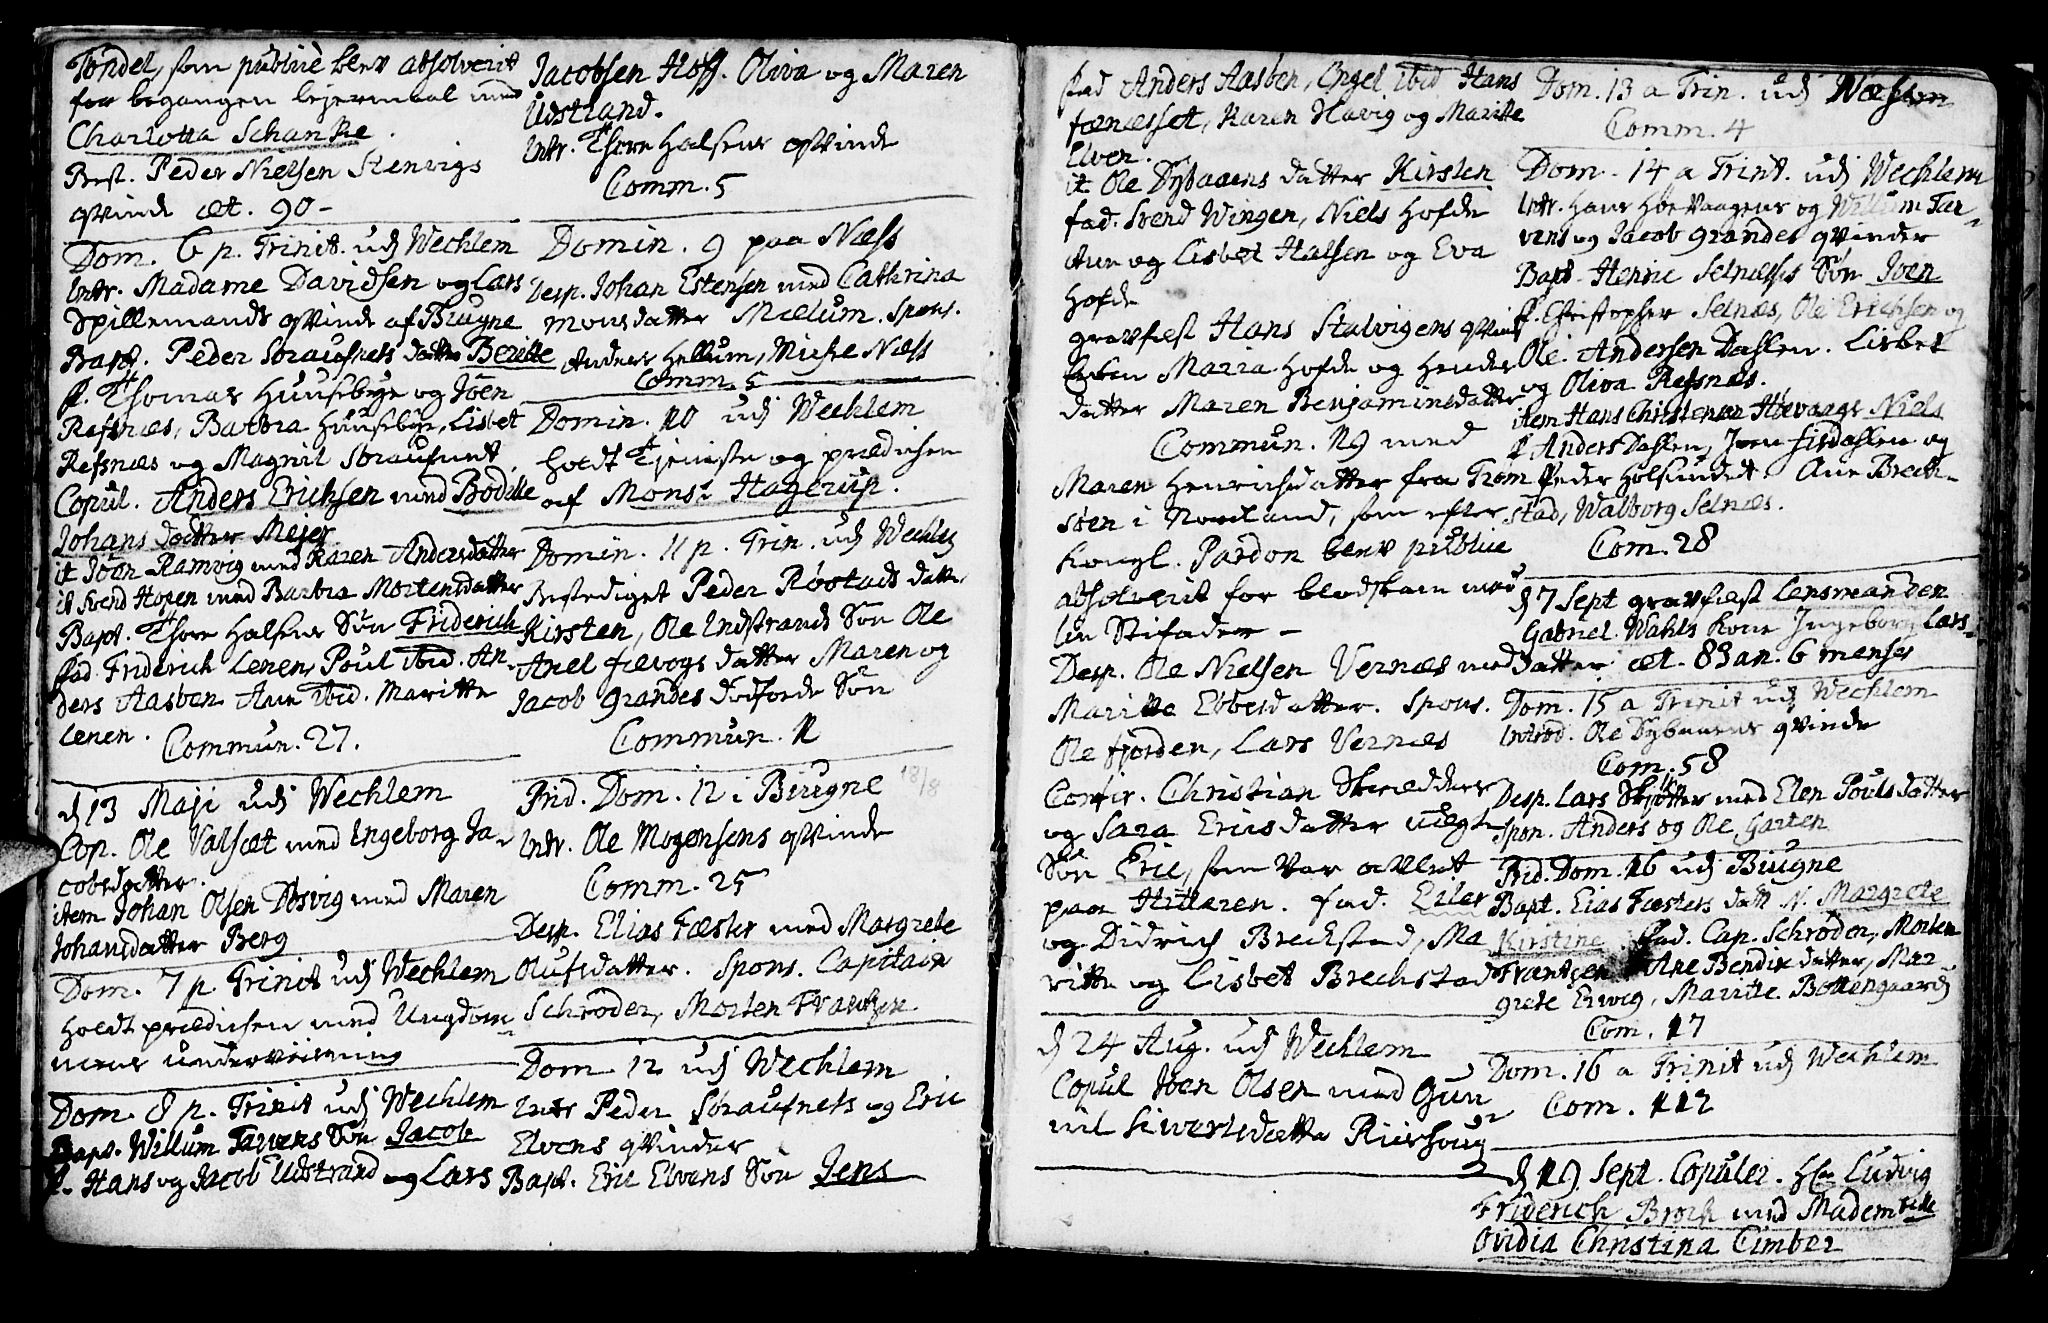 Tøndel, som publice blev absolverit
for begangen lejermaal med
Charlotta Schanke.
Best. Peder Nielsen Stenvigs
qvinde æt. 90-
Dom. 6 p. Trinit. udj Wechlem
Intr. Madame Davidsen og Lars
Spillemands qvinde af Biugne
Bapt. Peder Soraufnets datter Beritte
f. Thomas Huusebye og Joen
Refsnæs, Barbra Huusebye, Lisbet
Refsnæs og Magnil Soraufnet
Copul. Anders Erichsen med Bodille
Johans datter Mejer
it Joen Ramvig med Karen Andersdatter
it Svend Hogen med Barbra Mortensdatter
Bapt. Thore Halsens Søn Friderich
fad. Friderich Lenen, Poul ibid. An-
ders Aasben Ane ibid. Maritte
Lenen.
Commun. 27.
d 13 Maji udj Wechlem
Cop. Ole Valsæt med Ingeborg Ja-
cobsdatter.
item Johan Olsen Døsvig med Maren
Johansdatter Berg
Dom. 7 p. Trinit udj Wechlem
holdt prædichen med Ungdom-
mens underviisning
Dom. 8 p. Trinit udj Wechlem
Bapt. Willum Tarvens Søn Jacob
f. Hans og Jacob Udstrand og Lars
Jacobsen Hoff. Oliva og Maren
Udstrand.
Intr. Thore Halsens qvinde
Comm. 5
Domin. 9 paa Næss
Desp. Johan Estensen med Cathrina
Monsdatter Mælum. Spons.
Anders Hellum, Michel Næss
Comm. 5
Domin. 10 udj Wechlem
holdt Tjeniste og prædichen
af Monsr Hagerup.
Domin. 11 p. Trin. udj Wechlem
Bestediget Peder Røstads datter
Kirsten, Ole Indstrands Søn Ole
Anel fævogs datter Maren og
Jacob Grandes dødfødde Søn
Commun. 11
Prid. Dom. 12 i Biugne 18/8
Intr. Ole Mogensens qvinde
Comm. 25
Desp. Elias Fæster med Margrete
Olufsdatter. Spons. Capitain
Schrøder, Morten Frantzen
Dom. 12 udj Wechlem
Intr Peder Soraufnets og Eric
Elvens qvinder
Bapt. Eric Elvens Søn Jens
fad Anders Aasben, Engel ibid Hans
fænæsset, Karen Havig og Maritte
Elven.
it Ole Dybaaens datter Kirsten
fad. Svend Wingen, Niels Hofde
Ane og Lisbet Halsen og Eva
Hofde
gravfæst Hans Stalvigens qvinde
Maria Hofde og hendes
datter Maren Benjaminsdatter
Commun. 19 med
Maren Henrichsdatter fra Trom-
søen i Nordland, som efter
Kongl. Pardon blev publice
absolverit for blodskam med
sin Stifader -
Desp. Ole Nielsen Vernæs med
Maritte Ebbesdatter. Spons.
Ole fjorden, Lars Vernæs
Confir. Christian Skrædders
og Sara Ericsdatter uægte
Søn Eric, som var avlet
paa Hitteren. fad. Eiler
og Didrich Breckstad, Ma-
ritte og Lisbet Brechstad
d 24 Aug. udj Wechlem
Copul Joen Olsen med Gun-
nil Sivertsdatter Riersoug
Dom. 13 a Trin. udj Næssen
Comm. 4
Dom. 14 a Trinit. udj Wechlem
Intr. Hans Høevaagens og Willum Tar-
vens og Jacob Grandes qvinder
Bapt. Henric Selnæsses Søn Joen
f. Christopher Selnæs, Ole Erichsen og
Ole Andersen Dahlen. Lisbet
og Oliva Refsnæs.
item Hans Christensen Høevaags Niels
f Anders Dahlen, Joen fisdahlen og
Peder Holsundet. Ane Breck-
stad, Walborg Selnæs.
Com. 28
d 7 Sept gravfæst Lensmanden
Gabriel Wahls Kone Ingeborg Lars-
datter. æt. 83 an. 6 menses
Dom. 15 a Trinit udj Wechlem
Introd. Ole Dybaaens qvinde
Com. 58
Desp. Lars Skjøtter med Elen Pouls datter
spon. Anders og Ole Garten
Prid. Dom. 16 udj Biugne
Bapt. Elias Fæsters datt N. Margrete
Kirstine fad. Cap. Schrøder, Morten
Frantzen Ane Bendix datter, Mar-
grete Ervig, Maritte Bottengaard
Com. 17
Dom. 16 a Trinit udj Wechlem
Com. 112
d 19 Sept. Copuler. Hr Ludvig
Friderich Broch med Mademoiselle
Ovidia Christina Cimber